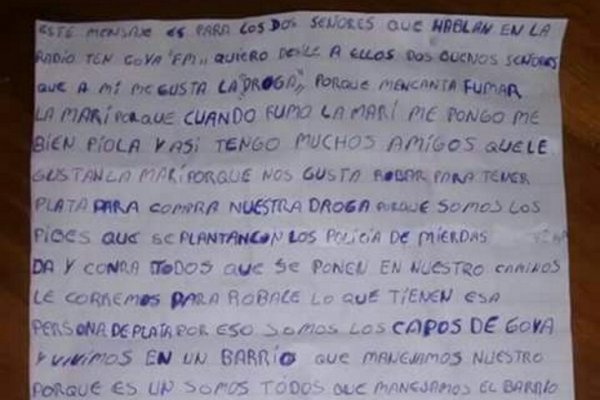 ESTE MENSAJE ES PARA LOS DOS SEÑORES QUE HABLAN EN LA
RADIO TEN GOYA "FM,, QUIERO DESLE A ELLOS DOS BUENOS SEÑORES
QUE A MI ME GUSTA LA "DROGA,, PORQUE MENCANTA FUMAR
LA MARI PORQUE CUANDO FUMO LA MARÍ ME PONGO ME
BIEN PIOLA Y ASI TENGO MUCHOS AMIGOS QUE LE
GUSTAN LA MARI PORQUE NOS GUSTA ROBAR PARA TENER
PLATA PARA COMPRA NUESTRA DROGA PORQUE SOMOS LOS
PIBES QUE SE PLANTAN CON LOS POLICIA DE MIERDAS
DA Y CONRA TODOS QUE SE PONEN EN NUESTRO CAMINOS
LE CORREMOS PARA ROBALE LO QUE TIENEN ESA
PERSONA DE PLATA POR ESO SOMOS LOS CAPOS DE GOYA
Y VIVIMOS EN UN BARRIO QUE MANEJAMOS NUESTRO
PORQUE ES UN SOMOS TODOS QUE MANEJAMOS EL BARRIO